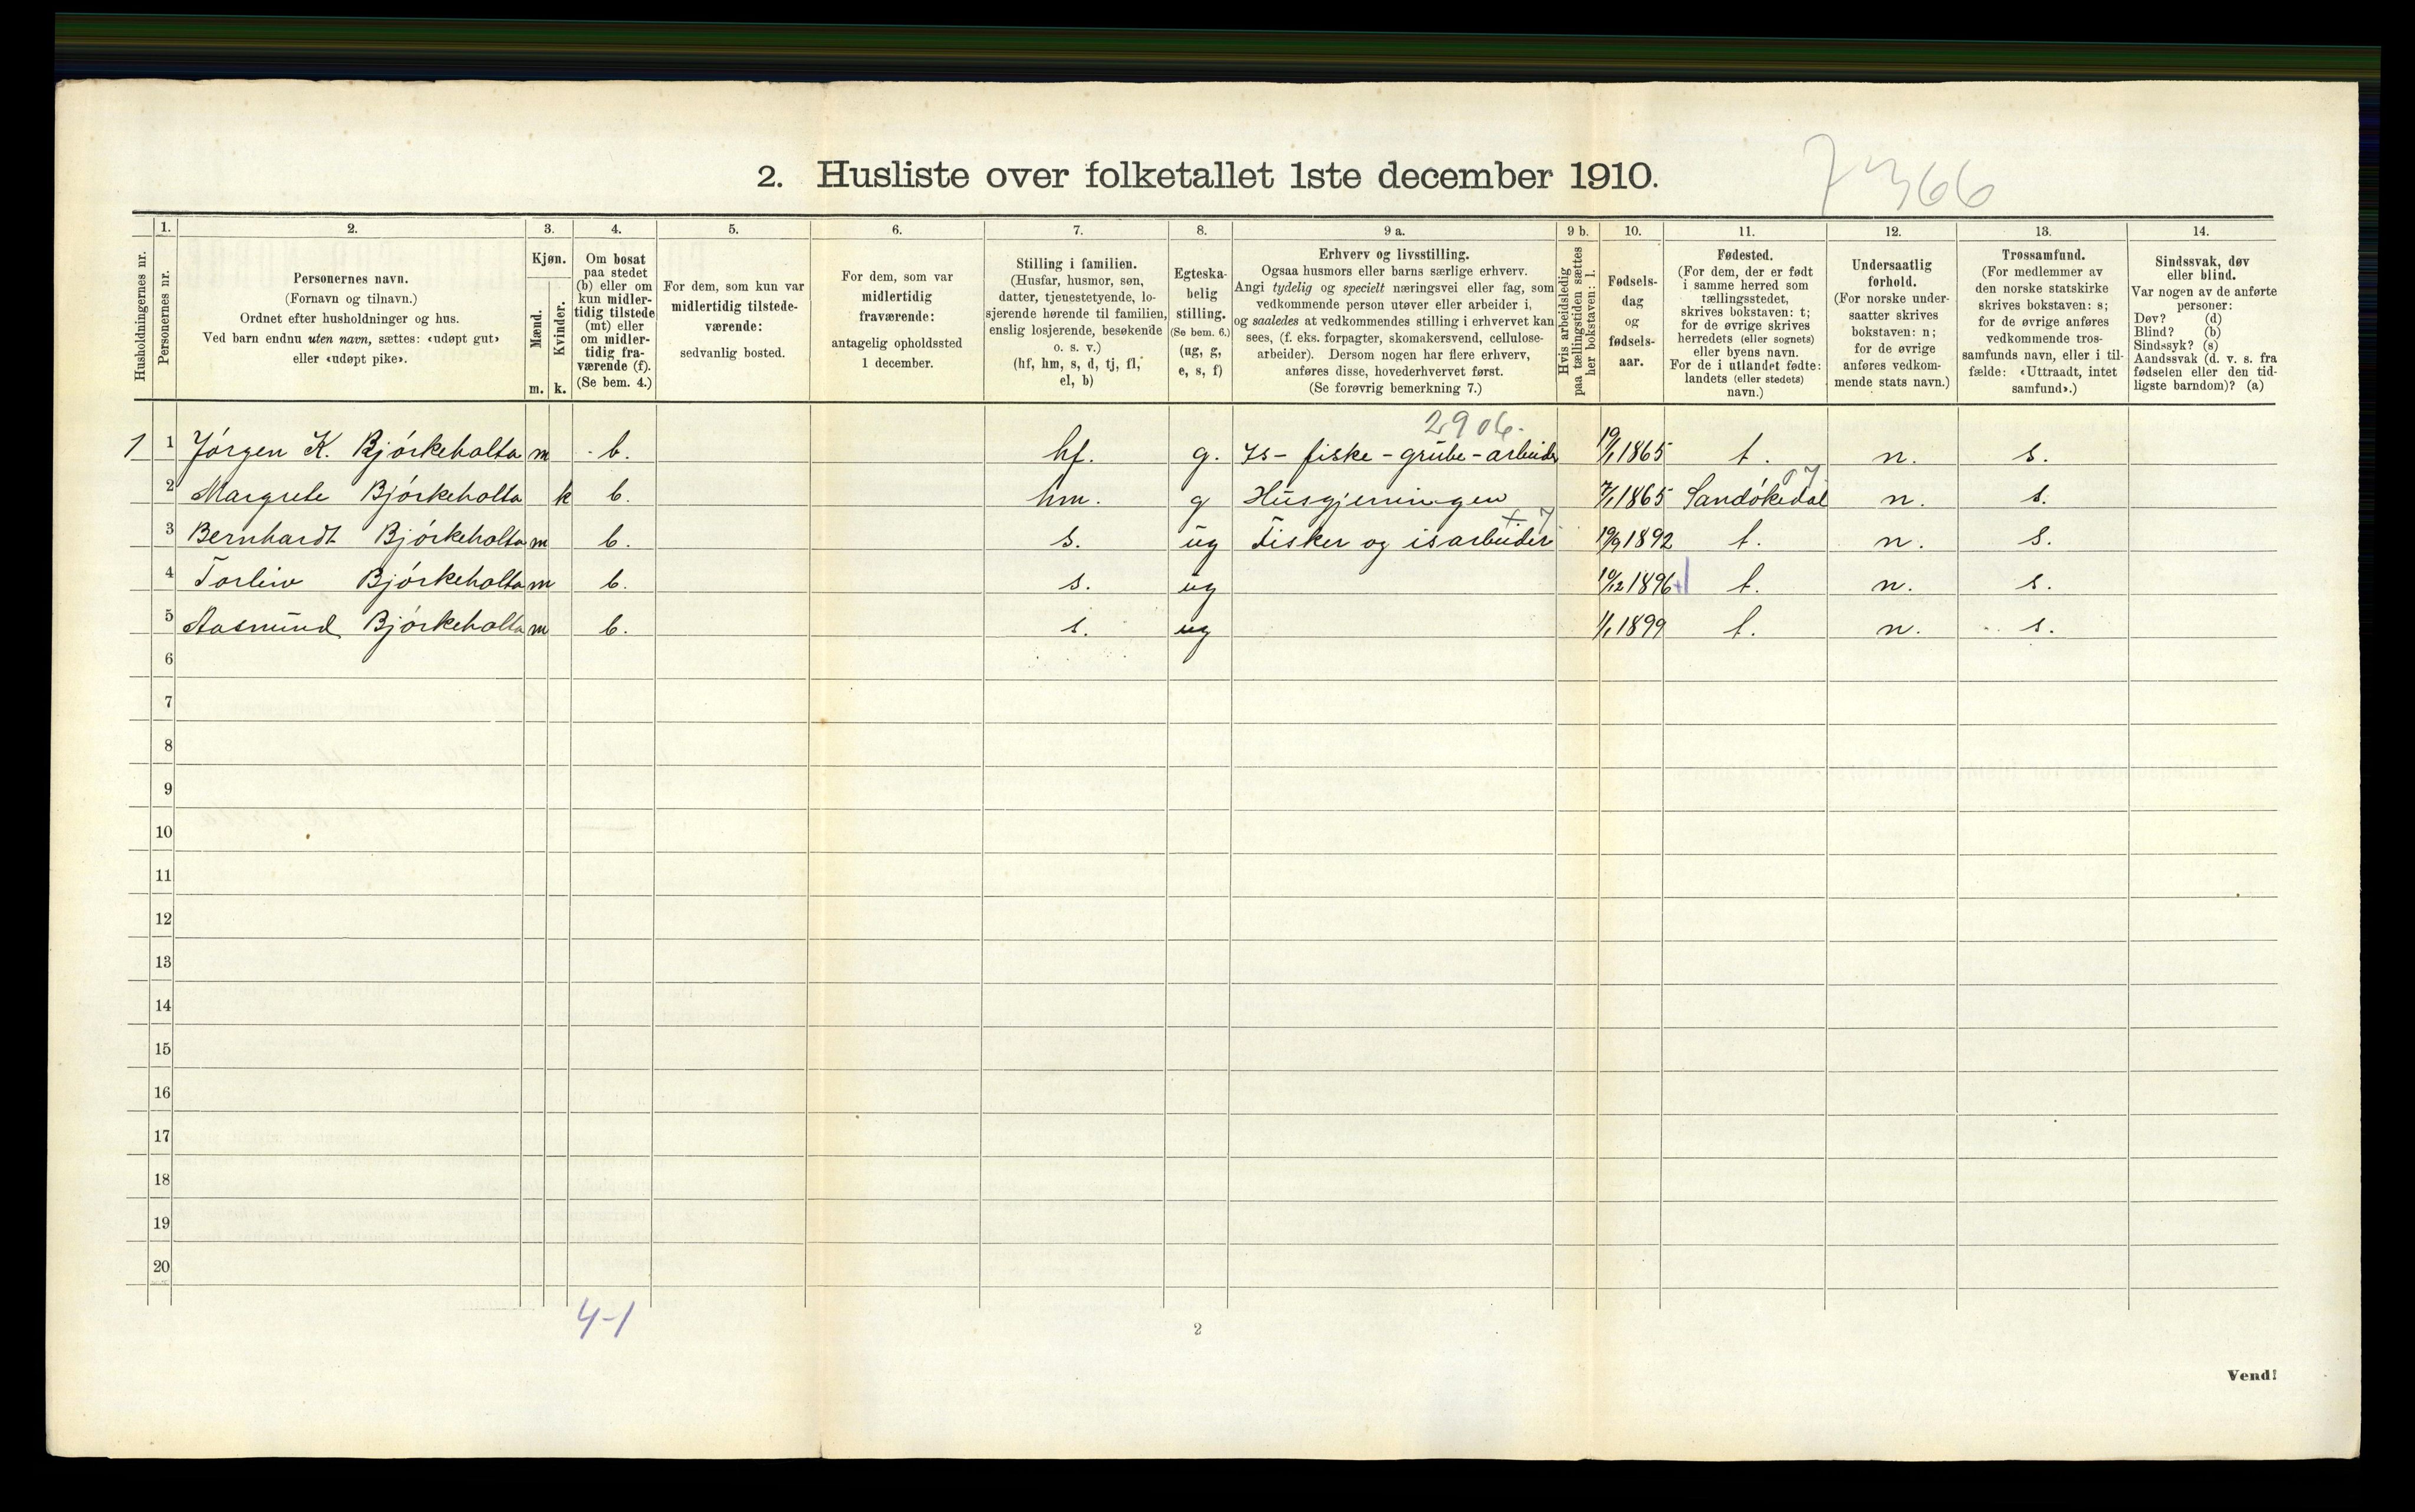 2. Husliste over folketallet 1ste december 1910.
7366
Husholdningernes nr.
1.
Personernes nr.
2.
Personernes navn.
(Fornavn og tilnavn.)
Ordnet efter husholdninger og hus.
Ved barn endnu uten navn, sættes: «udøpt gut»
eller «udøpt pike».
3.
Kjøn.
Mænd.
m.
Kvinder.
k.
4.
Om bosat
paa stedet
(b) eller om
kun midler-
tidig tilstede
(mt) eller
om midler-
tidig fra-
værende (f).
(Se bem. 4.)
5.
For dem, som kun var
midlertidig tilstede-
værende:
sedvanlig bosted.
6.
For dem, som var
midlertidig
fraværende:
antagelig opholdssted
1 december.
7.
Stilling i familien.
(Husfar, husmor, søn,
datter, tjenestetyende, lo-
sjerende hørende til familien,
enslig losjerende, besøkende
o. s. v.)
(hf, hm, s, d, tj, fl,
el, b)
8.
Egteska-
belig
stilling.
(Se bem. 6.)
(ug, g,
e, s, f)
9 a.
Erhverv og livsstilling.
Ogsaa husmors eller barns særlige erhverv.
Angi tydelig og specielt næringsvei eller fag, som
vedkommende person utøver eller arbeider i,
og saaledes at vedkommendes stilling i erhvervet kan
sees, (f. eks. forpagter, skomakersvend, cellulose-
arbeider). Dersom nogen har flere erhverv,
anføres disse, hovederhvervet først.
(Se forøvrig bemerkning 7.)
9 b.
Hvis arbeidsledig
paa tællingstiden sættes
her bokstaven: l.
10.
Fødsels-
dag
og
fødsels-
aar.
11.
Fødested.
(For dem, der er født
i samme herred som
tællingsstedet,
skrives bokstaven: t;
for de øvrige skrives
herredets (eller sognets)
eller byens navn.
For de i utlandet fødte:
landets (eller stedets)
navn.)
12.
Undersaatlig
forhold.
(For norske under-
saatter skrives
bokstaven: n;
for de øvrige
anføres vedkom-
mende stats navn.)
13.
Trossamfund.
(For medlemmer av
den norske statskirke
skrives bokstaven: s;
for de øvrige anføres
vedkommende tros-
samfunds navn, eller i til-
fælde: «Uttraadt, intet
samfund».)
14.
Sindssvak, døv
eller blind.
Var nogen av de anførte
personer:
Døv? (d)
Blind? (b)
Sindssyk? (s)
Aandssvak (d. v. s. fra
fødselen eller den tid-
ligste barndom)? (a)
2906.
1 1 Jørgen K. Bjørkeholta m b. hf. g. Is- fiske - grube - arbeider 19/1 1865 t. n. s.
2 Margrete Bjørkeholta k b. hm. g Husgjerningen 7/1 1865 Sandøkedal 07 n. s.
3 Bernhardt Bjørkeholta m b. s. ug Fisker og isarbeider + 7 19/9 1892 t. n. s.
4 Torleiv Bjørkeholta m b. s. ug 10/12 1896 t. n. s.
5 Aasmund Bjørkeholta m b. s. ug 1/1 1899 t. n. s.
6
7
8
9
10
11
12
13
14
15
16
17
18
19
20
4-1
2
Vend!